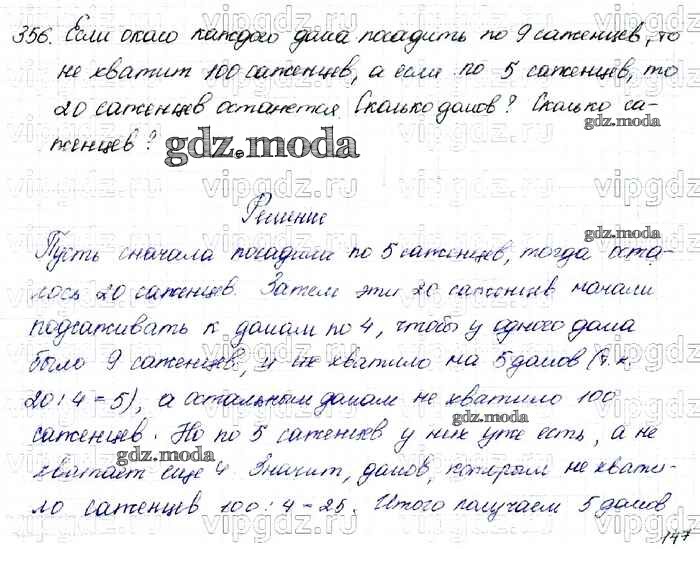 356. Если около каждого дома посадить по 9 саженцев, то
не хватит 100 саженцев, а если по 5 саженцев, то
20 саженцев останется. Сколько домов? Сколько са-
женцев?
gdz.moda
Решение
gdz.moda
Пусть сначала посадили по 5 саженцев, тогда оста-
лось 20 саженцев. Затем эти 20 саженцев начали
подсаживать к домам по 4, чтобы у одного дома
было 9 саженцев, и их хватило на 5 домов (т.к.
20:4=5), а остальным домам не хватило 100
gdz.moda
саженцев. Но по 5 саженцев у них уже есть, а не
gdz.moda
хватает еще 4. Значит, домов, которым не хвати-
ло саженцев 100:4=25. Итого получаем 5 домов
147
vipgdz.ru